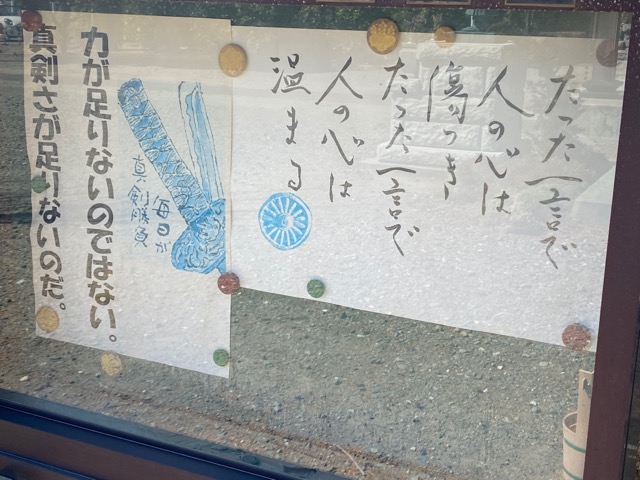 たった一言で
人の心は
傷つき
たった一言で
人の心は
温まる
力が足りないのではない。
真剣さが足りないのだ。
毎日が
真剣勝負